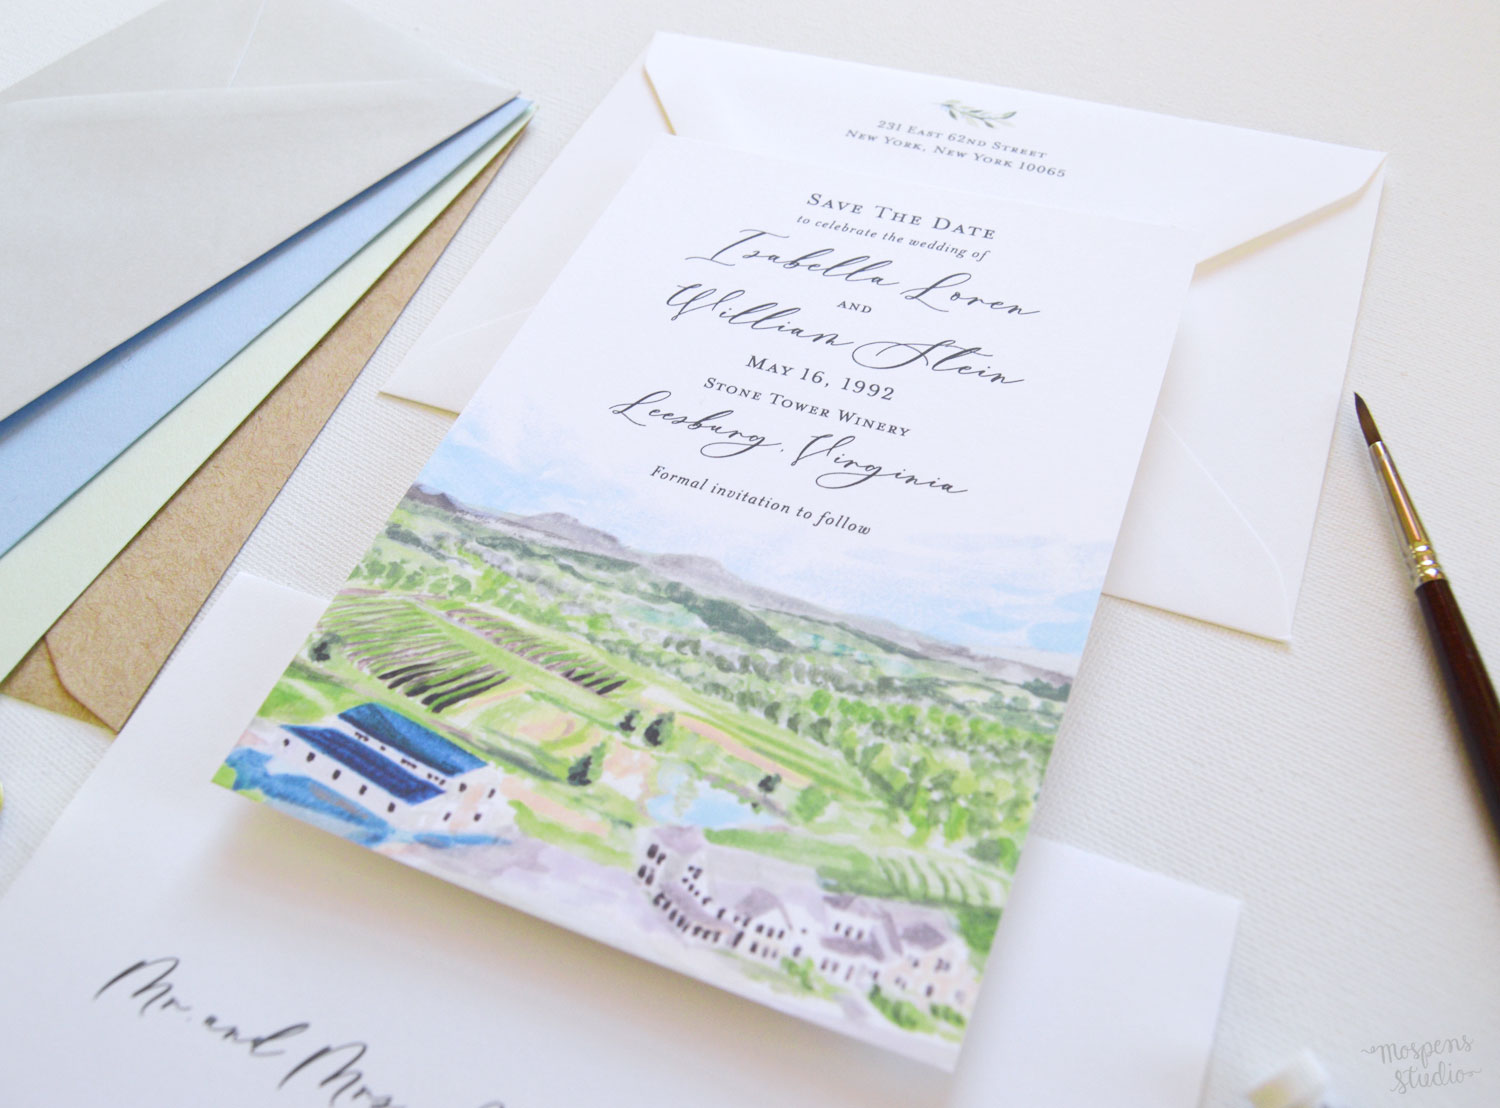 231 East 62nd Street
New York, New York 10065
Save The Date
to celebrate the wedding of
Isabella Loren
and
William Stein
May 16, 1992
Stone Tower Winery
Leesburg, Virginia
Formal invitation to follow
Mr. and Mrs.
mospens
studio